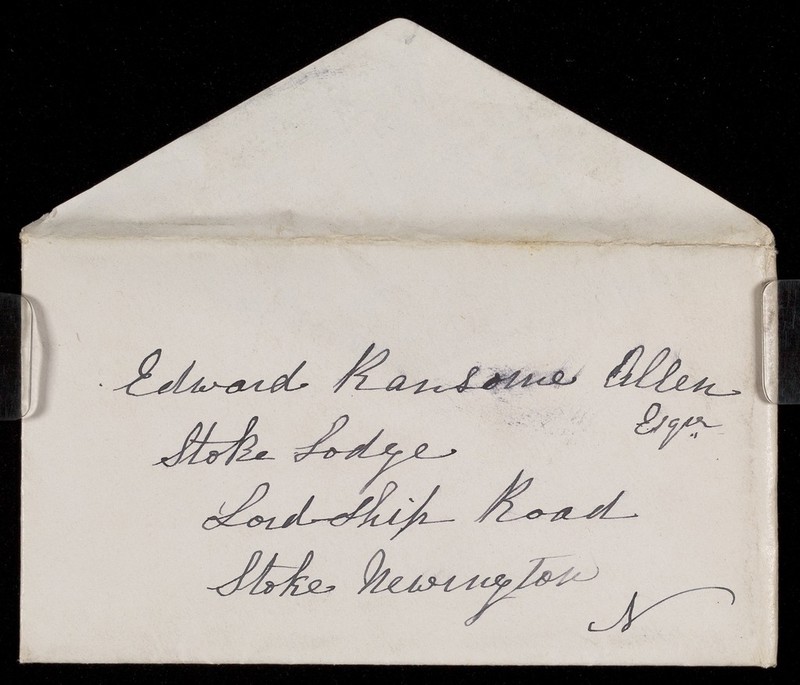 Edward Ransome Allen
Esqre
Stoke Lodge
Lordship Road
Stoke Newington
N